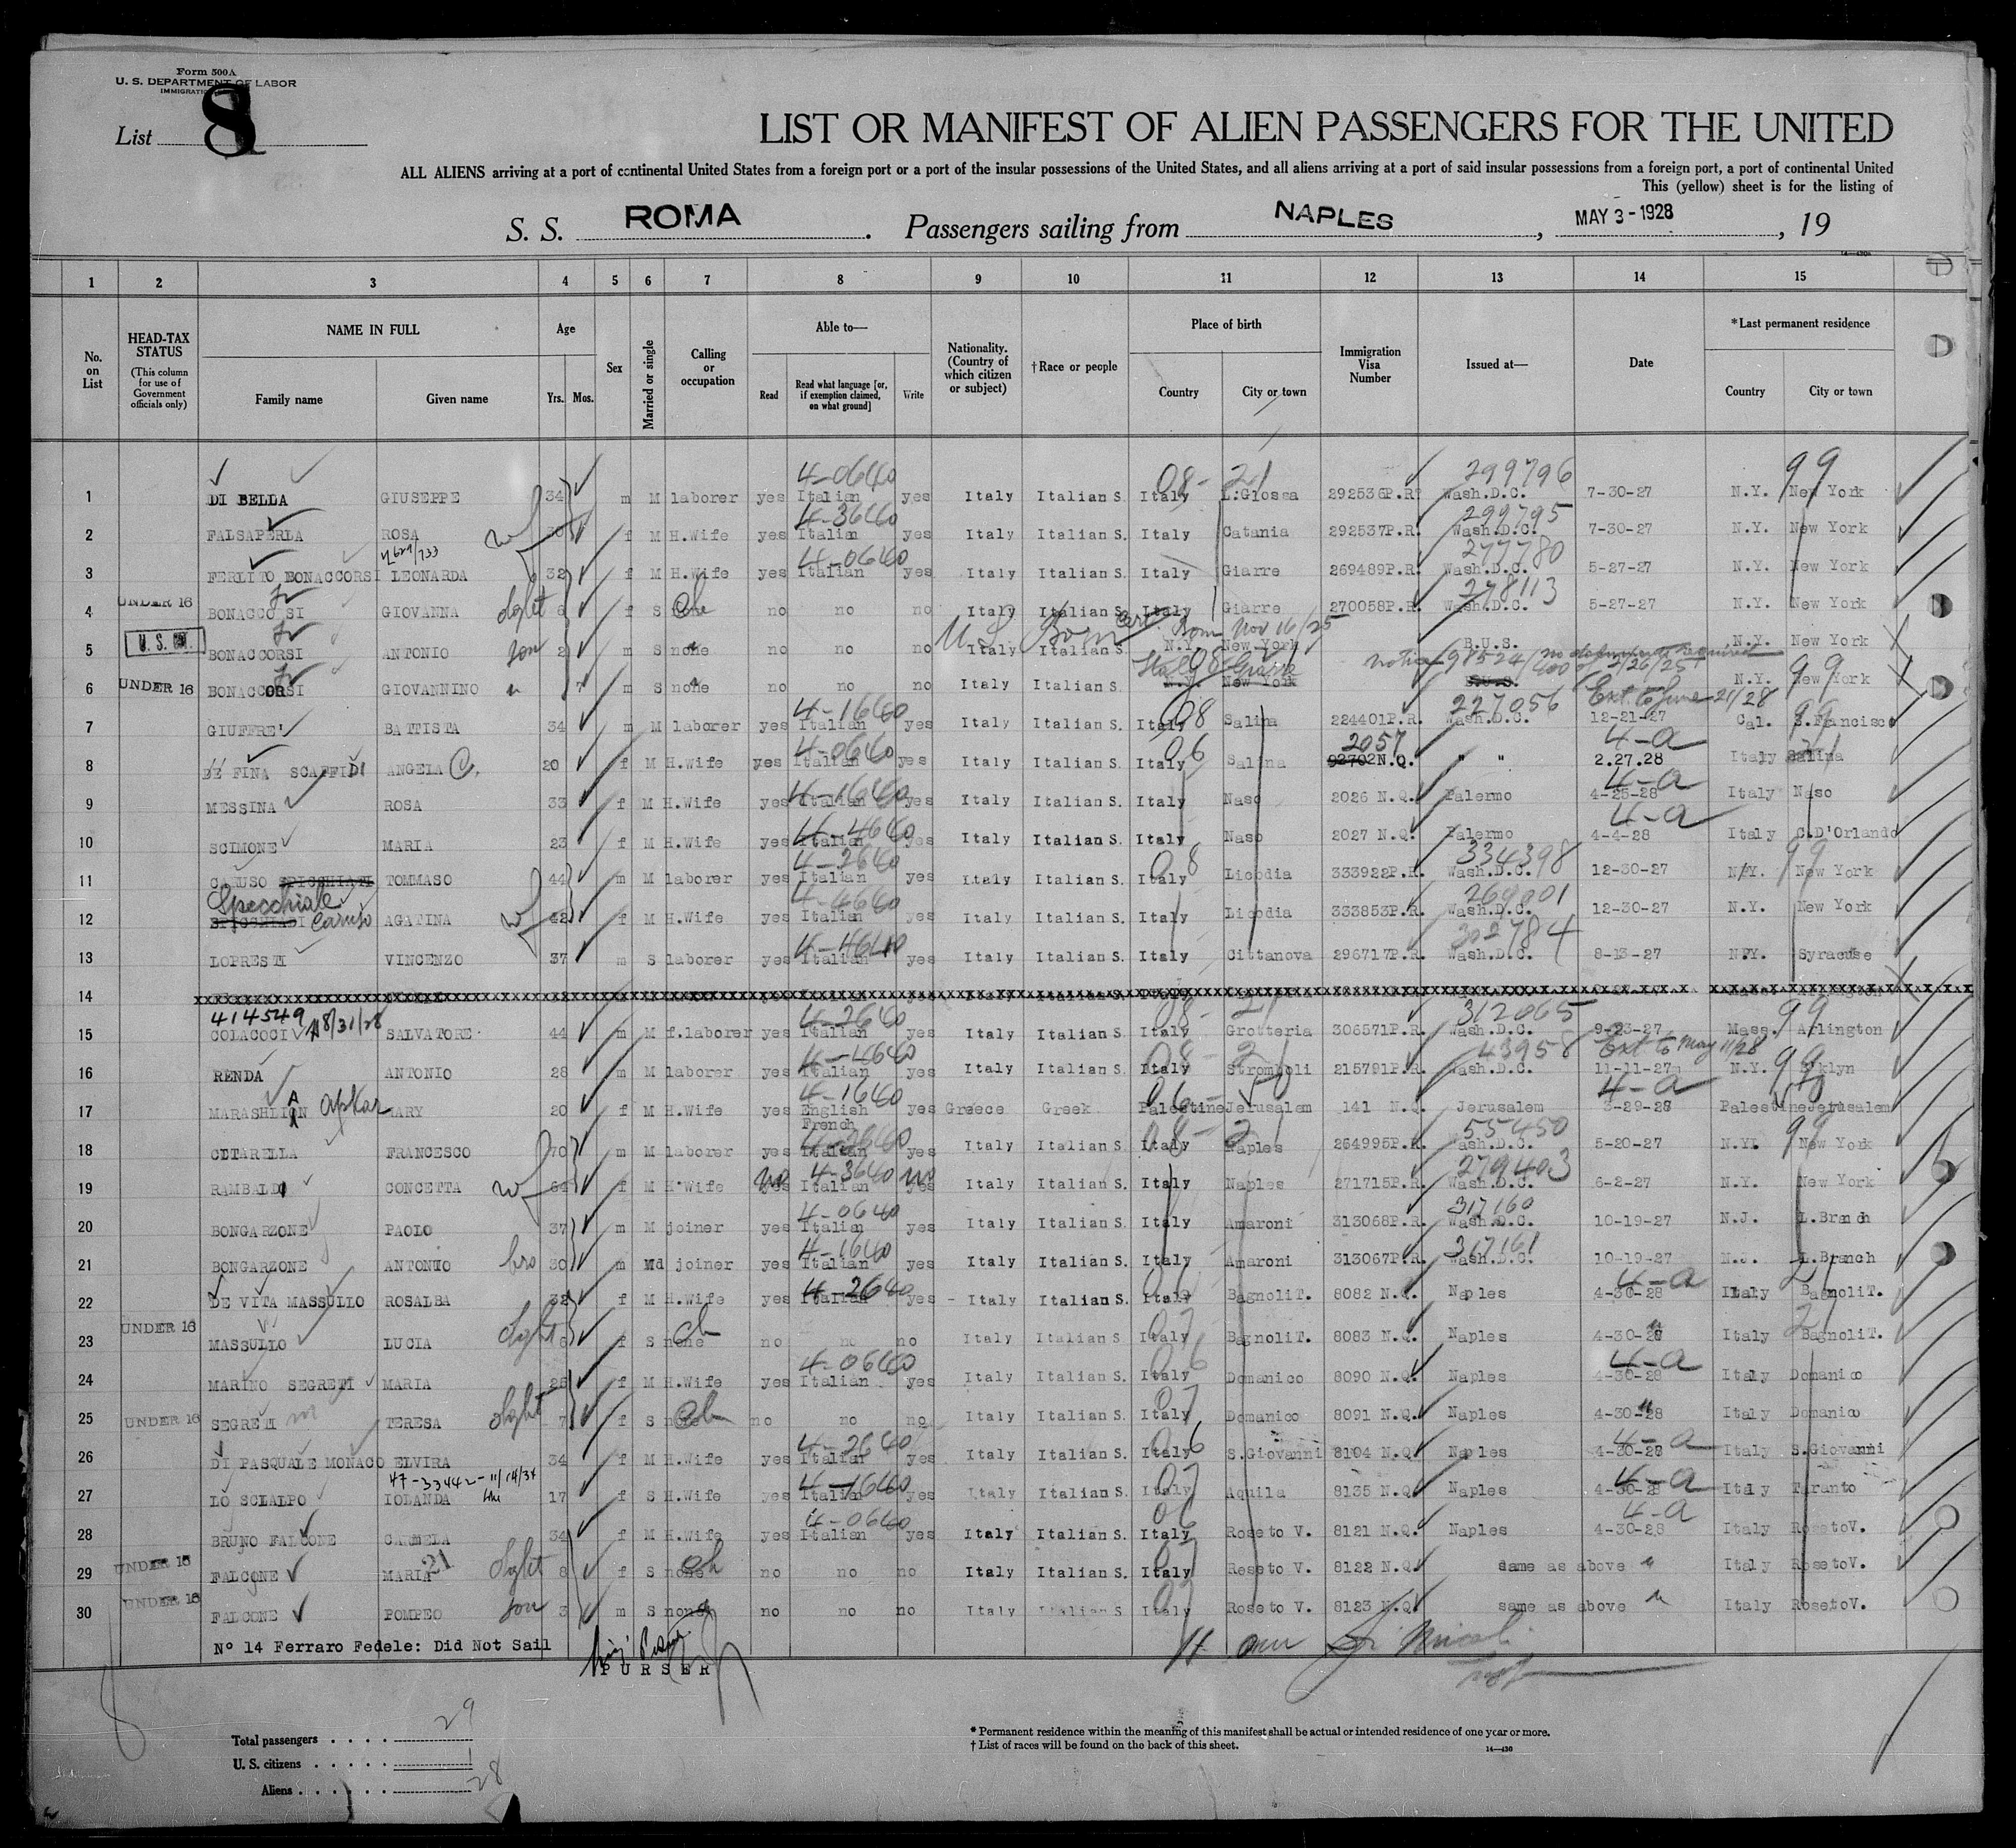 Form 500A
U. S. DEPARTMENT OF LABOR
List 8
LIST OR MANIFEST OF ALIEN PASSENGERS FOR THE UNITED
ALL ALIENS arriving at a port of continental United States from a foreign port or a port of the insular possessions of the United States, and all aliens arriving at a port of said insular possessions from a foreign port, a port of continental United
This (yellow) sheet is for the listing of
S. S. ROMA . Passengers sailing from NAPLES , MAY 3-1928 , 19
1 2 3 4 5 6 7 8 9 10 11 12 13 14 15
No. on List
HEAD-TAX STATUS (This column for use of Government officials only)
NAME IN FULL Family name Given name
Age Yrs. Mos.
Sex
Married or single
Calling or occupation
Able to— Read Read what language [or, if exemption claimed, on what ground] Write
Nationality. (Country of which citizen or subject)
†Race or people
Place of birth Country City or town
Immigration Visa Number
Issued at—
Date
*Last permanent residence Country City or town
4-0640 08-21 299796 99
1 DI BELLA GIUSEPPE 34 m M laborer yes Italian yes Italy Italian S. Italy L.Glossa 292536P.R. Wash.D.C. 7-30-27 N.Y. New York
4-3640 299795
2 FALSAPERLA ROSA 30 f M H.Wife yes Italian yes Italy Italian S. Italy Catania 292537P.R. Wash.D.C. 7-30-27 N.Y. New York
4-0640 277780
3 FERLITO BONACCORSI LEONARDA 32 f M H.Wife yes Italian yes Italy Italian S. Italy Giarre 269489P.R. Wash.D.C. 5-27-27 N.Y. New York
278113
4 UNDER 16 BONACCO SI GIOVANNA dght 6 f S ch no no no Italy Italian S. Italy Giarre 270058P.R. Wash.D.C. 5-27-27 N.Y. New York
U.S. Born Cert. Born Nov 16/25
5 BONACCORSI ANTONIO son 2 m S none no no no Italy Italian S. N.Y. New York B.U.S. N.Y. New York
Italy 08 Giarre no documents required
6 UNDER 16 BONACCORSI GIOVANNINO 7 m S none no no no Italy Italian S. N.Y. New York N.Y. New York
4-1640 08 227056 Ext. to June 21/28
7 GIUFFRE' BATTISTA 34 m M laborer yes Italian yes Italy Italian S. Italy Salina 224401P.R. Wash.D.C. 12-21-27 Cal. S.Francisco
4-0640 06 2057 4-a
8 DE FINA SCAFFIDI ANGELA C. 20 f M H.Wife yes Italian yes Italy Italian S. Italy Salina 92702N.Q. " " 2.27.28 Italy Salina
4-1640 4-a
9 MESSINA ROSA 33 f M H.Wife yes Italian yes Italy Italian S. Italy Naso 2026 N.Q. Palermo 4-25-28 Italy Naso
4-4640 4-a
10 SCIMONE MARIA 23 f M H.Wife yes Italian yes Italy Italian S. Italy Naso 2027 N.Q. Palermo 4-4-28 Italy C.D'Orlando
4-2640 08 334398 99
11 CARUSO SPICCHIATI TOMMASO 44 m M laborer yes Italian yes Italy Italian S. Italy Licodia 333922P.R. Wash.D.C. 12-30-27 N.Y. New York
Specchiale 4-4640
12 SPICCHIATI Caruso AGATINA 42 f M H.Wife yes Italian yes Italy Italian S. Italy Licodia 333853P.R. Wash.D.C. 12-30-27 N.Y. New York
4-4640 302784
13 LOPRESTI VINCENZO 37 m S laborer yes Italian yes Italy Italian S. Italy Cittanova 296717P.R. Wash.D.C. 8-13-27 N.Y. Syracuse
14
414549 8/31/28 4-2640 08-21 312665 99
15 COLACOCI SALVATORE 44 m M f.laborer yes Italian yes Italy Italian S. Italy Grotteria 306571P.R. Wash.D.C. 9-23-27 Mass. Arlington
4-4640 08-21 43958 Ext to May 11/28
16 RENDA ANTONIO 28 m M laborer yes Italian yes Italy Italian S. Italy Stromboli 215791P.R. Wash.D.C. 11-11-27 N.Y. Bklyn
4-1640 06- 4-a
17 MARASHLIAN Apkar MARY 20 f M H.Wife yes English French yes Greece Greek Palestine Jerusalem 141 N.Q. Jerusalem 3-29-28 Palestine Jerusalem
4-2640 08-21 55450 99
18 CITARELLA FRANCESCO 70 m M laborer yes Italian yes Italy Italian S. Italy Naples 264995P.R. Wash.D.C. 5-20-27 N.Y. New York
no 4-3640 no 279403
19 RAMBALDI CONCETTA 64 f M H.Wife yes Italian yes Italy Italian S. Italy Naples 271715P.R. Wash.D.C. 6-2-27 N.Y. New York
4-0640 317160
20 BONGARZONE PAOLO 37 m M joiner yes Italian yes Italy Italian S. Italy Amaroni 313068P.R. Wash.D.C. 10-19-27 N.J. L.Branch
4-1640 317161
21 BONGARZONE ANTONIO bro 30 m Md joiner yes Italian yes Italy Italian S. Italy Amaroni 313067P.R. Wash.D.C. 10-19-27 N.J. L.Branch
4-2640 06 4-a 21
22 DE VITA MASSULLO ROSALBA 32 f M H.Wife yes Italian yes Italy Italian S. Italy BagnoliT. 8082 N.Q. Naples 4-30-28 Italy BagnoliT.
23 UNDER 16 MASSULLO LUCIA dght 6 f S none ch no no no Italy Italian S Italy 07 BagnoliT. 8083 N.Q. Naples 4-30-28 Italy BagnoliT.
4-0640 06 4-a
24 MARINO SEGRETI MARIA 25 f M H.Wife yes Italian yes Italy Italian S. Italy Domanico 8090 N.Q. Naples 4-30-28 Italy Domanico
25 UNDER 16 SEGRETI TERESA dght 7 f S none ch no no no Italy Italian S. Italy 07 Domanico 8091 N.Q. Naples 4-30-28 Italy Domanico
4-2640 06 4-a
26 DI PASQUALE MONACO ELVIRA 34 f M H.Wife yes Italian yes Italy Italian S. Italy S.Giovanni 8104 N.Q. Naples 4-30-28 Italy S.Giovanni
47-33442-11/14/34 4-1640 07 4-a
27 LO SCIALPO IOLANDA 17 f S H.Wife yes Italian yes Italy Italian S. Italy Aquila 8135 N.Q. Naples 4-30-28 Italy Taranto
4-0640 06 4-a
28 BRUNO FALCONE CARMELA 34 f M H.Wife yes Italian yes Italy Italian S. Italy Roseto V. 8121 N.Q. Naples 4-30-28 Italy RosetoV.
29 UNDER 16 FALCONE MARIA 21 dght 8 f S none ch no no no Italy Italian S. Italy 07 Roseto V. 8122 N.Q. same as above Italy RosetoV.
30 UNDER 16 FALCONE POMPEO son 3 m S none no no no Italy Italian S Italy 07 Roseto V. 8123 N.Q. same as above Italy RosetoV.
Nº 14 Ferraro Fedele: Did Not Sail
PURSER
Total passengers . . . . 29
U. S. citizens . . . . . 1
Aliens . . . . . . 28
* Permanent residence within the meaning of this manifest shall be actual or intended residence of one year or more.
† List of races will be found on the back of this sheet.
14—430